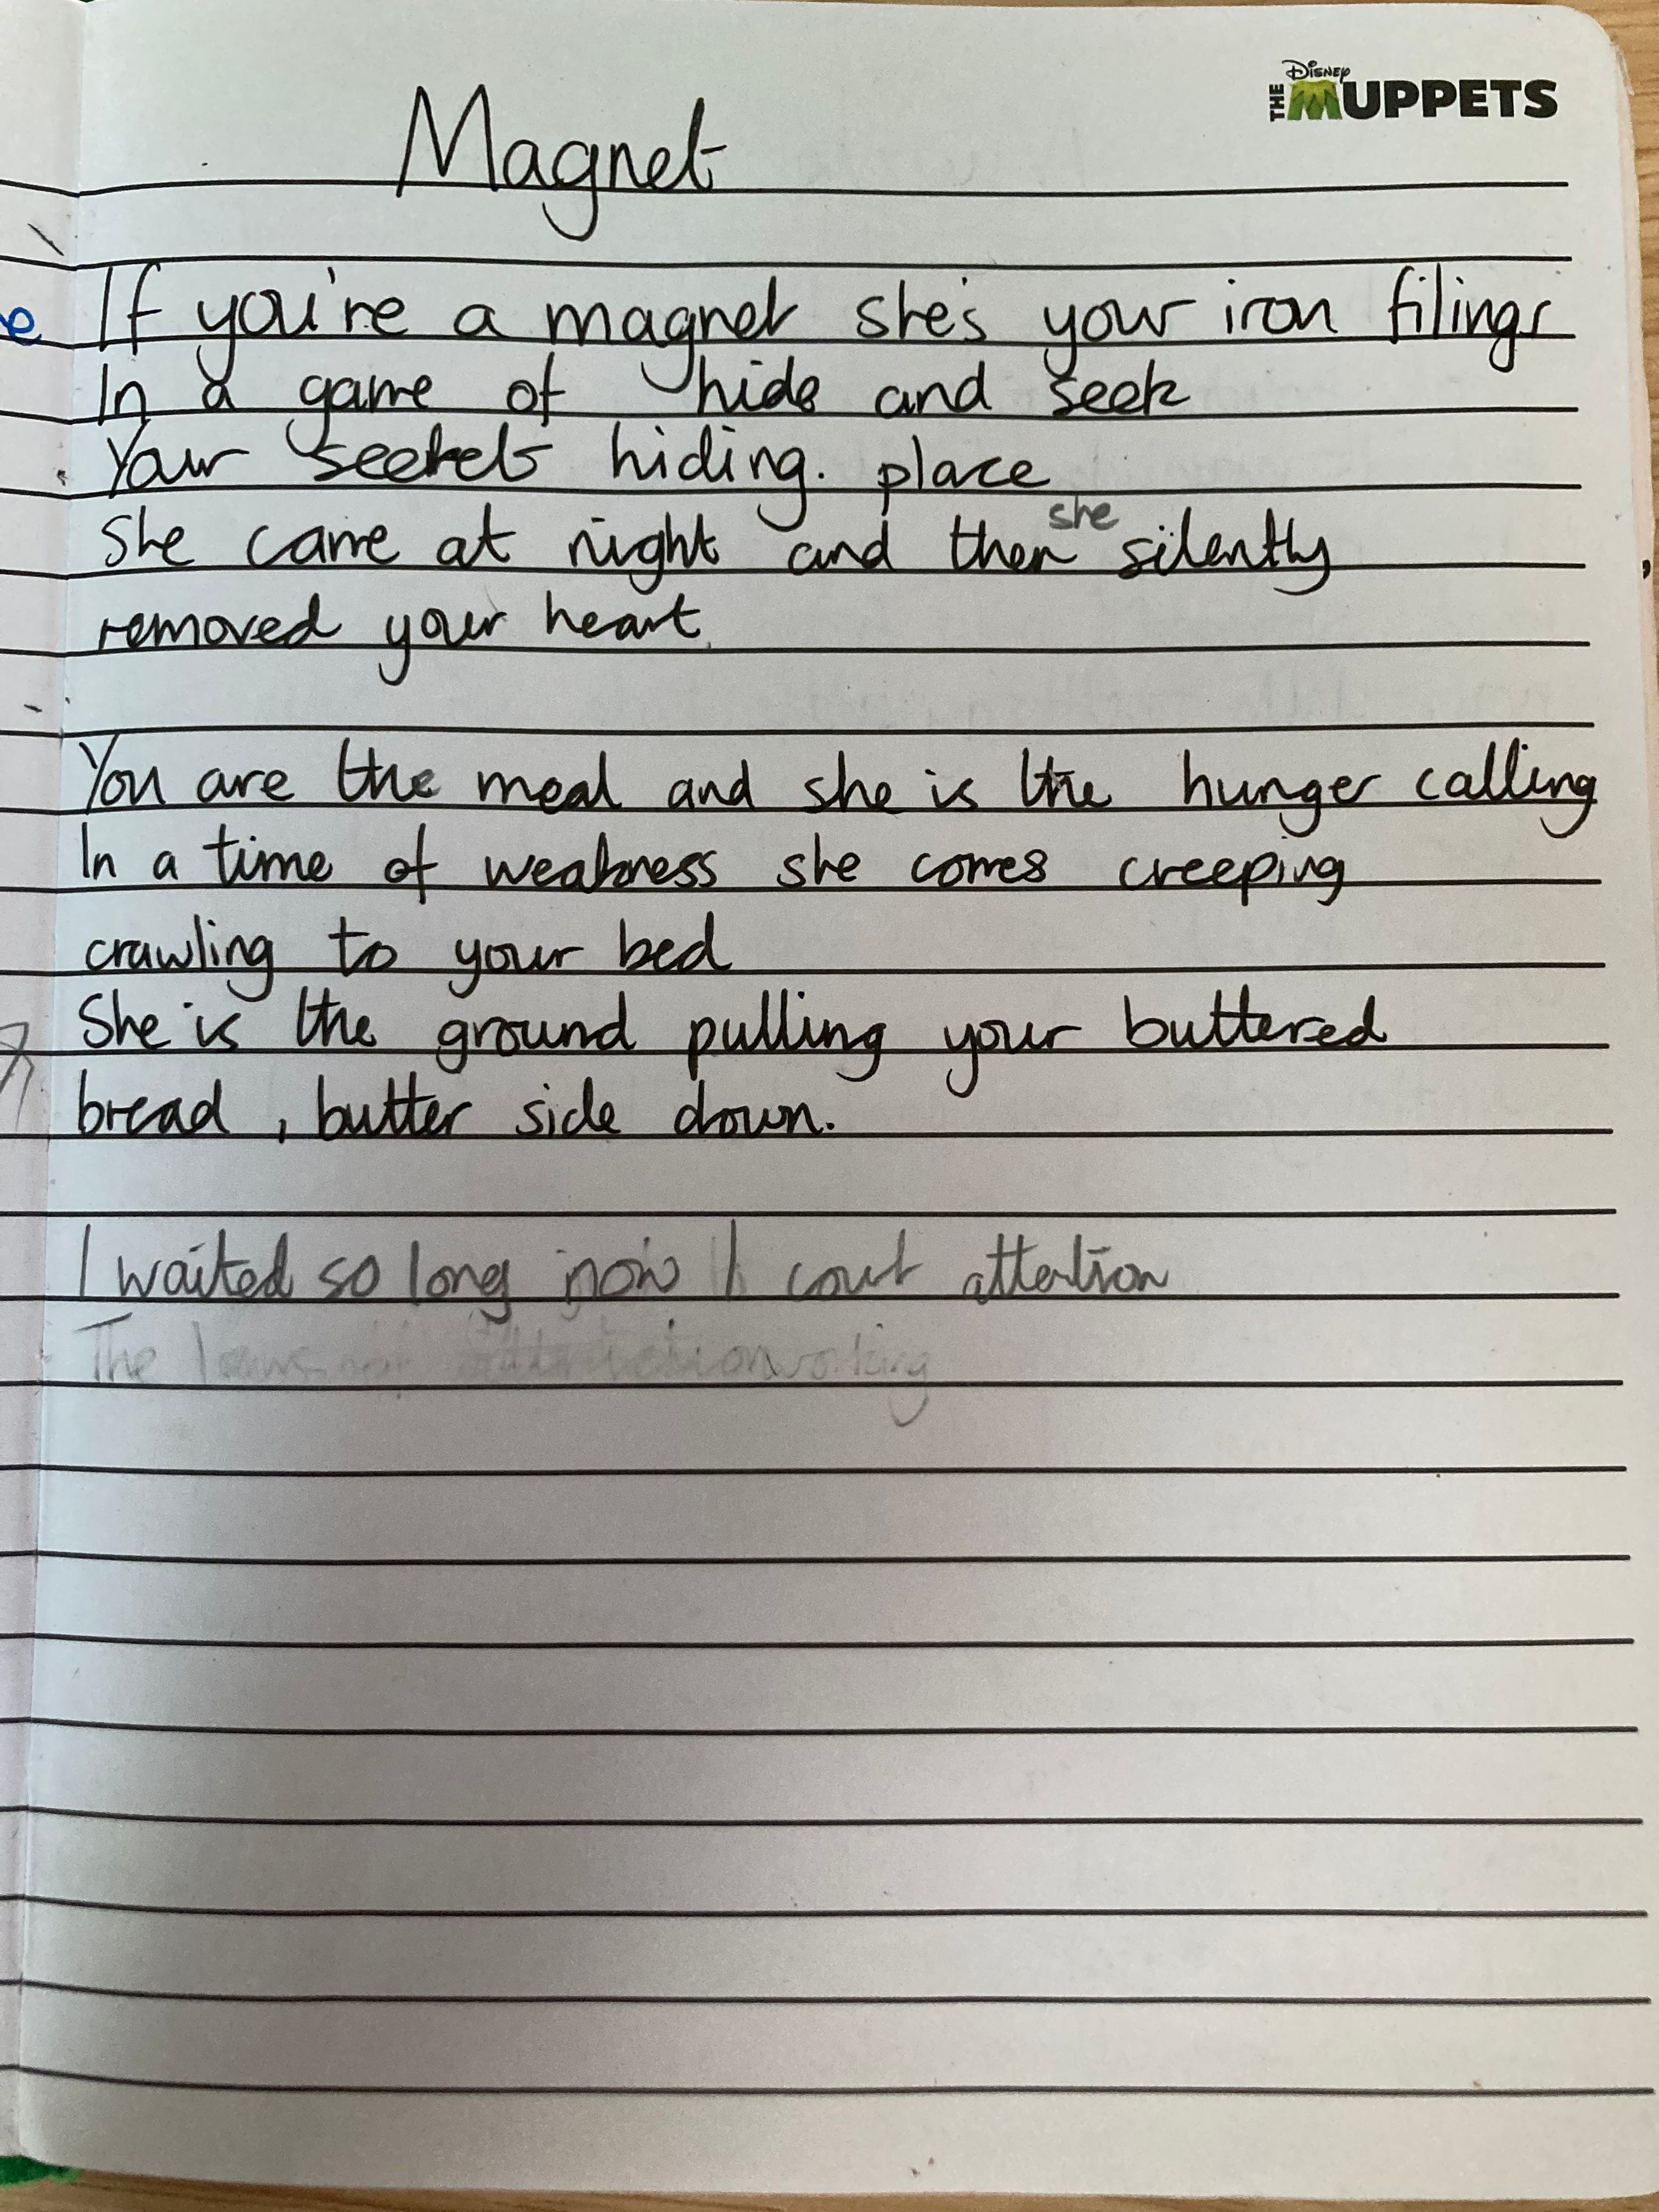 THE DISNEY MUPPETS
Magnet
If you're a magnet she's your iron filings
In a game of hide and seek
Your hiding. place
She came at night and then she silently
removed your heart.
You are the meal and she is the hunger calling
In a time of weakness she comes creeping
crawling to your bed
She is the ground pulling your buttered
bread, butter side down.
I waited so long now I court attention
The laws of attraction working